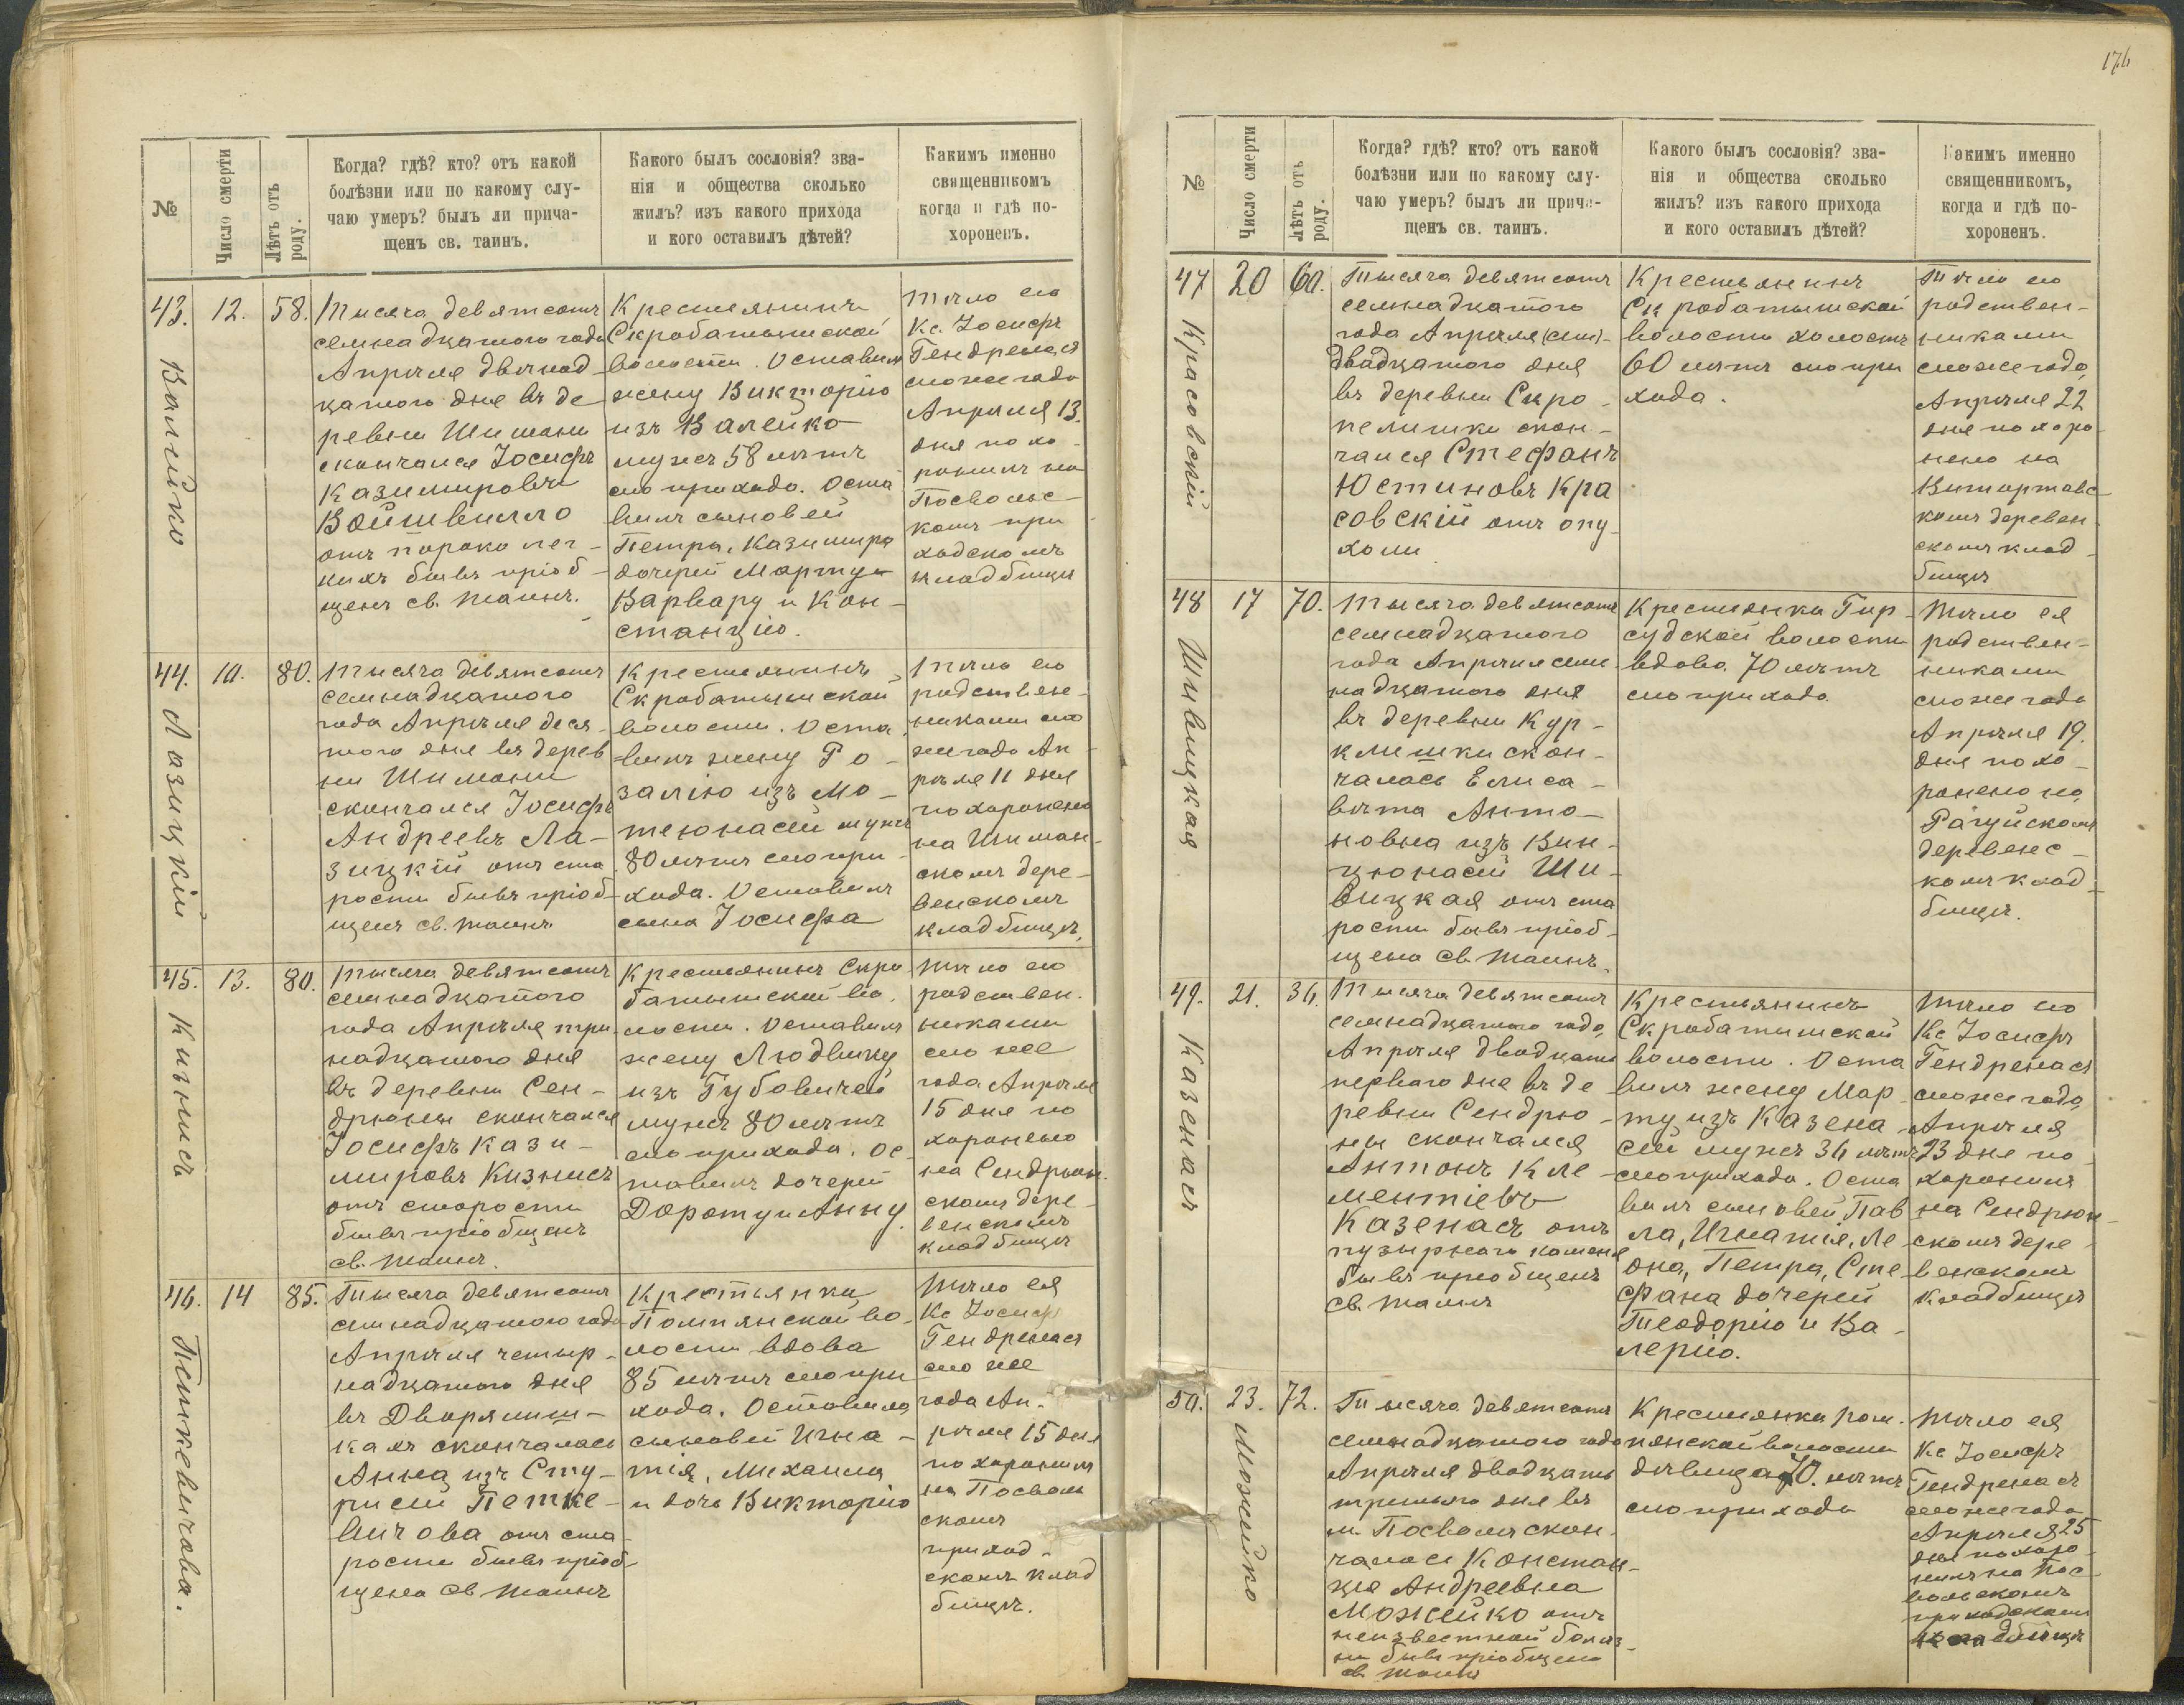 176
№
Число смерти
Лѣтъ отъ
роду.
Когда? гдѣ? кто? отъ какой
болѣзни или по какому слу-
чаю умеръ? былъ ли прича-
щенъ св. таинъ.
Какого былъ сословія? зва-
нія и общества сколько
жилъ? изъ какого прихода
и кого оставилъ дѣтей?
Какимъ именно
священникомъ
когда и гдѣ по-
хороненъ.
43.
12.
58.
Тысяча девятсотъ
семнадцатого года
Апрѣля двѣнад-
цатого дня въ де
ревни Шимани
скончался Іосифъ
Казимировъ
Войшвилло
отъ порока лег-
кихъ бывъ пріоб-
щенъ св. таинъ.
Крестьянинъ
Скробатышской
волости. Оставилъ
жену Викторію
изъ Валейко
мужъ 58 лѣтъ
сего прихода. Оста
вилъ сыновей
Петра, Казимира
дочерей Марту
Варвару и Кон-
станцію.
Тѣло его
Кс. Іосифъ
Гендренасъ
сего же года
Апрѣля 13.
дня похо-
ронилъ на
Посвольс-
комъ при
ходскомъ
кладбищѣ
44. Лазицкій
10.
80.
Тысяча девятсотъ
семнадцатого
года Апрѣля деся
того дня въ дерев
ни Шимани
скончался Іосифъ
Андреевъ Ла-
зицкій отъ ста
рости бывъ пріоб-
щенъ св. таинъ
Крестьянинъ
Скробатышской
волости. Оста
вилъ жену Ро-
залію изъ Мо-
теюнасей мужъ
80 лѣтъ сего при-
хода. Оставилъ
сына Іосифа
Тѣло его
родствен-
никами сего
же года Ап-
рѣля 11 дня
похоронено
на Шиман-
скомъ дере-
венскомъ
кладбищѣ.
45.
13.
80.
Тысяча девятсотъ
семнадцатого
года Апрѣля три
надцатого дня
въ деревни Сен-
дрюны скончался
Іосифъ Кази-
мировъ Кизнисъ
отъ старости
бывъ пріобщенъ
св. таинъ.
Крестьянинъ Скро
батышской во
лости. Оставилъ
жену Людвику
изъ Губовичей
мужъ 80 лѣтъ
сего прихода. Ос-
тавилъ дочерей
Дороту и Анну.
Тѣло его
родствен-
никами
сего же
года Апрѣля
15 дня по
хоронено
на Сендрюн-
скомъ дере-
венскомъ
кладбищѣ
46. Петкевичова.
14
85.
Тысяча девятсотъ
семнадцатого года
Апрѣля четыр-
надцатого дня
въ Дворялиш-
кахъ скончалась
Анна изъ Сту-
рисей Петке-
вичова отъ ста-
рости бывъ пріоб-
щена св таинъ
Крестьянка
Помпянской во-
лости вдова
85 лѣтъ сего при
хода. Оставила
сыновей Игна-
тія, Михаила
и дочь Викторію
Тѣло ея
Кс Іосиф
Гендренасъ
сего же
года Ап-
рѣля 15 дня
похоронилъ
на Посволь
скомъ
приход-
скомъ клад
бищѣ.
№
Число смерти
Лѣтъ отъ
роду.
Когда? гдѣ? кто? отъ какой
болѣзни или по какому слу-
чаю умеръ? былъ ли прича-
щенъ св. таинъ.
Какого былъ сословія? зва-
нія и общества сколько
жилъ? изъ какого прихода
и кого оставилъ дѣтей?
Какимъ именно
священникомъ,
когда и гдѣ по-
хороненъ.
47 Красовскій
20
60.
Тысяча девятсотъ
семнадцатого
года Апрѣля
двадцатого дня
въ деревни Скро-
пелишки скон-
чался Стефанъ
Юстиновъ Кра
совскій отъ опу-
холи
Крестьянинъ
Скробатышской
волости холостъ
60 лѣтъ сего при
хода.
Тѣло его
родствен-
никами
сего же года
Апрѣля 22
дня похоро
нено на
комъ деревен-
скомъ клад-
бищѣ
48 Шивицкая
17
70.
Тысяча девятсотъ
семнадцатого
года Апрѣля сем
надцатого дня
въ деревни Кур-
клишки скон-
чалась Елиса-
вѣта Анто-
новна изъ Вин-
цюнасей Ши-
вицкая отъ ста
рости бывъ пріоб-
щена св. таинъ.
Крестьянка Гир-
судской волости
вдова 70 лѣтъ
сего прихода
Тѣло ея
родствен-
никами
сего же года
Апрѣля 19.
дня похо-
ронено на
Рагуйскомъ
деревенс-
комъ клад-
бищѣ.
49. Казенасъ
21.
36.
Тысяча девятсотъ
семнадцатого года
Апрѣля двадцать
первого дня въ де
ревни Сендрю-
ны скончался
Антонъ Кле
ментіевъ
Казенасъ отъ
пузырного каменя
бывъ пріобщенъ
св. таинъ
Крестьянинъ
Скробатышской
волости. Оста
вилъ жену Мар-
ту изъ Казена-
сей мужъ 36 лѣтъ
сего прихода. Оста
вилъ сыновей Пав
ла, Игнатія, Ле
она, Петра, Сте
фана дочерей
Теодорію и Ва-
лерію.
Тѣло его
Кс Іосифъ
Гендренасъ
сего же года
Апрѣля
23 дня по-
хоронилъ
на Сендрюн-
скомъ дере-
венскомъ
кладбищѣ
50. Можейко
23.
72.
Тысяча девятсотъ
семнадцатого года
Апрѣля двадцать
третьяго дня въ
м. Посволѣ скон-
чалась Констан-
ція Андреевна
Можейко отъ
неизвестной болѣз-
ни бывъ пріобщена
св таинъ
Крестьянка пом-
пянской волости
дѣвица 70. лѣтъ
сего прихода
Тѣло ея
Кс Іосифъ
Гендренасъ
сего же года
Апрѣля 25
дня похоро-
нилъ на Пос-
вольскомъ
приходскомъ
кладбищѣ